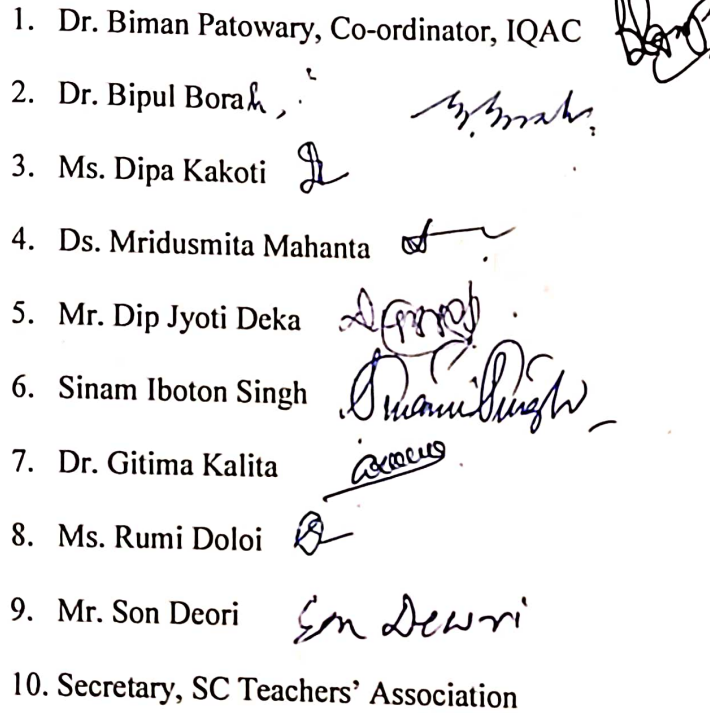 1. Dr. Biman Patowary, Co-ordinator, IQAC
2. Dr. Bipul Borah, B. Borah.
3. Ms. Dipa Kakoti
4. Ds. Mridusmita Mahanta
5. Mr. Dip Jyoti Deka
6. Sinam Iboton Singh Sinam Singh
7. Dr. Gitima Kalita
8. Ms. Rumi Doloi
9. Mr. Son Deori Son Dewri
10. Secretary, SC Teachers' Association